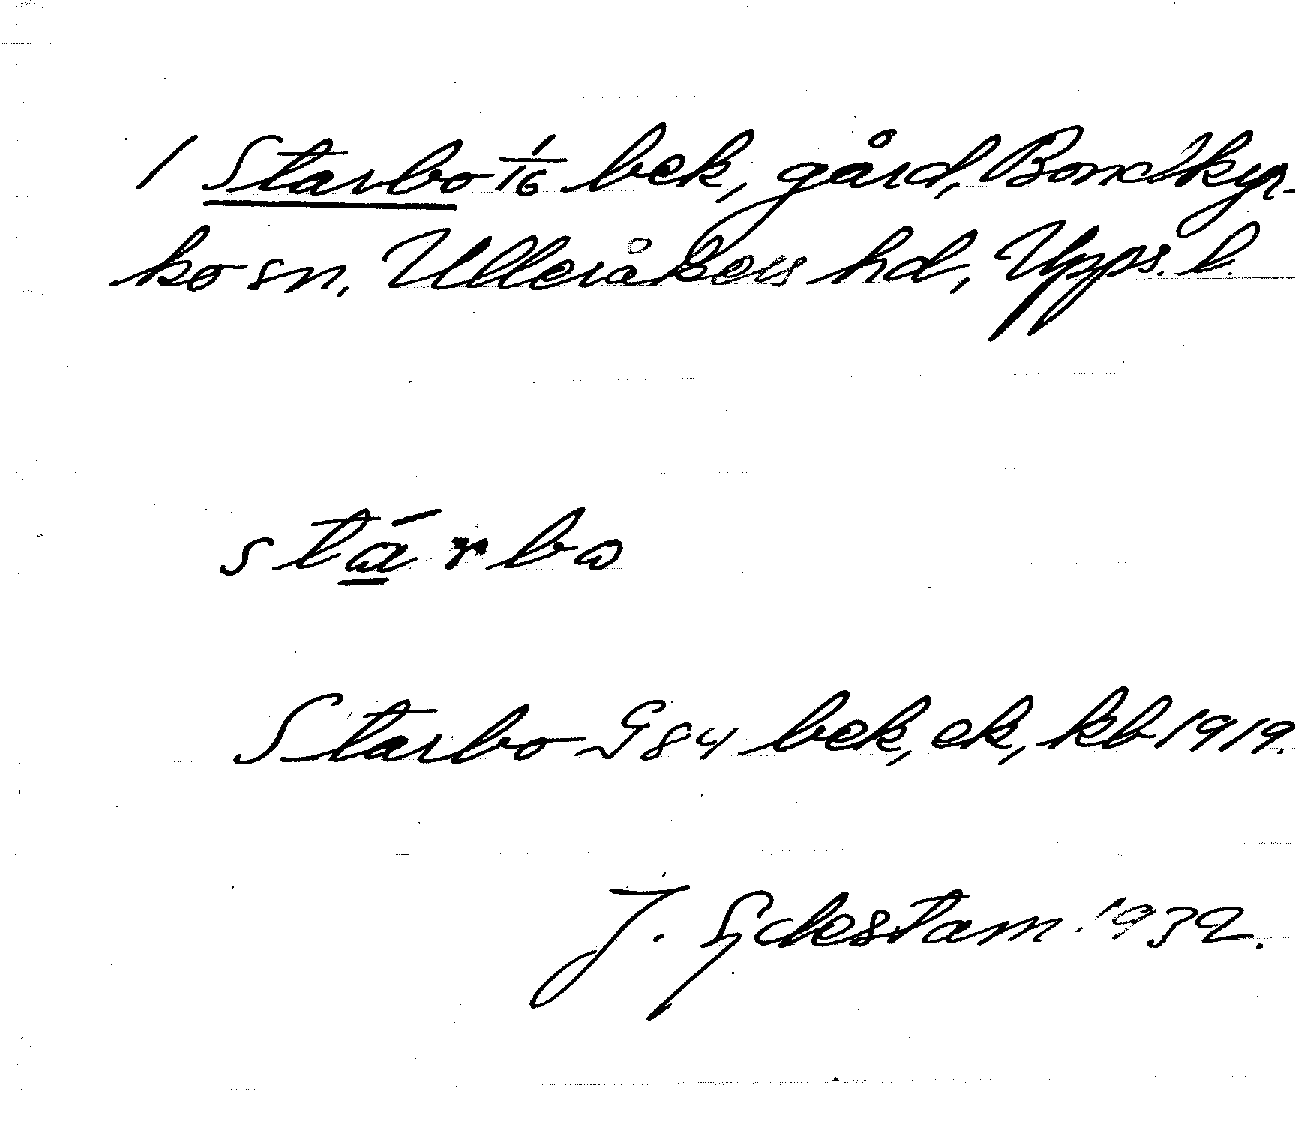 1 Starbo 1/16 bek, gård, Bondkyr-
ko sn, Ulleråkers hd, Upps. l.
stárbo
Starbo G 84 bek, ek, kb 1919.
J. Gdestam 1932.